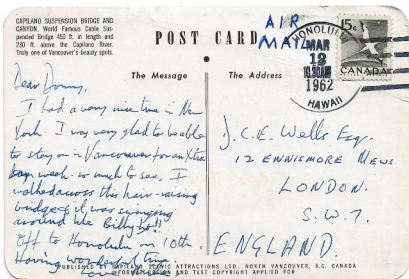 CAPILANO SUSPENSION BRIDGE AND
CANYON. World Famous Cable Sus-
pended Bridge 450 ft. in length and
230 ft. above the Capilano River.
Truly one of Vancouver's beauty spots.
POST CARD
AIR
MAIL
HONOLULU
MAR
12
10:30AM
1962
HAWAII
15¢
CANADA
The Message
The Address
Dear Donny,
I had a very nice time in New
York. I was very glad to be able
to stay on in Vancouver for an Xtra
week - so much to see. I
walked across this hair-raising
bridge & it was swinging
around like Billy-o!!
Off to Honolulu on 10th.
Having wonderful time.
J.C.E. Wells Esq.
12 ENNISMORE MEWS
LONDON.
S.W.7.
ENGLAND
PUBLISHED BY CAPILANO SCENIC ATTRACTIONS LTD., NORTH VANCOUVER, B.C. CANADA
INFORMATION, DESIGN AND TEXT COPYRIGHT APPLIED FOR